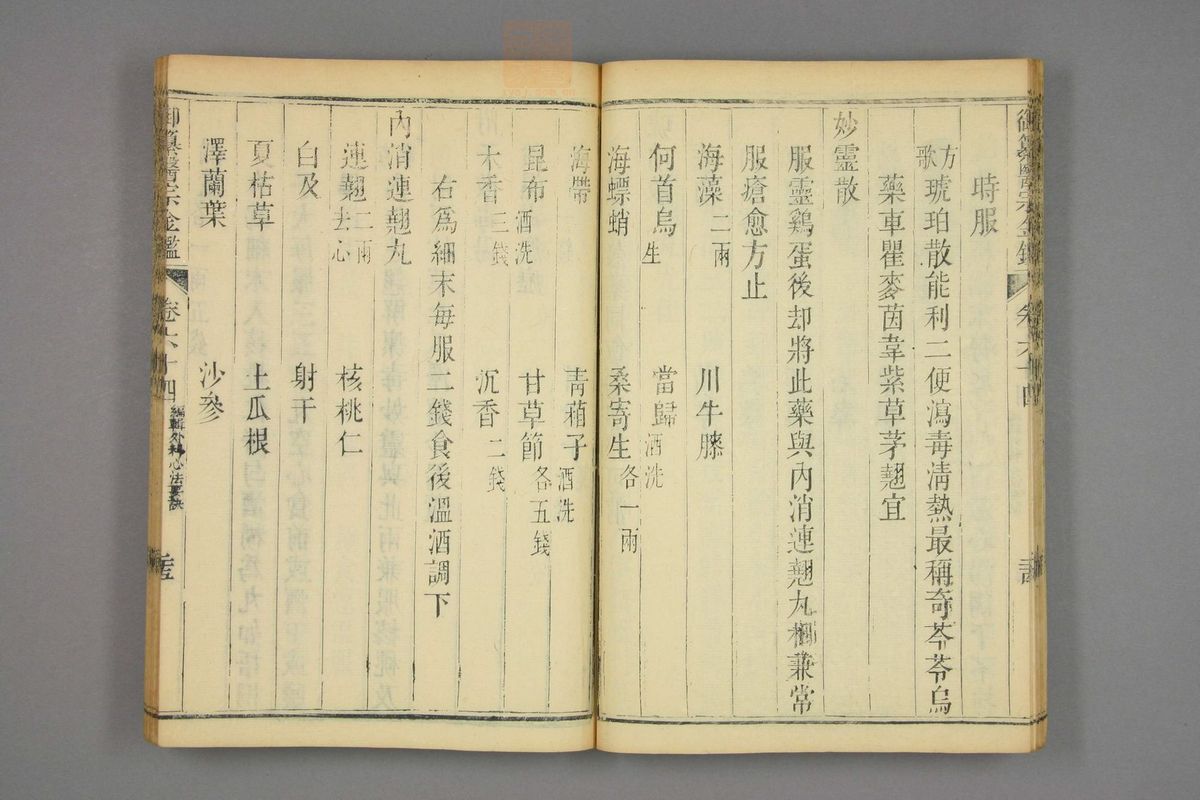 時服
方歌 琥珀散能利二便瀉毒淸熱最稱奇苓苓烏
藥車瞿麥茵韋紫草茅翹宜
妙靈散
服靈鷄蛋後却將此藥與內消連翹丸相兼常
服瘡愈方止
海藻二兩 川牛膝
何首烏生 當歸酒洗
海螵蛸 桑寄生各一兩
海帶 靑葙子酒洗
昆布酒洗 甘草節各五錢
木香三錢 沉香二錢
右爲細末每服二錢食後溫酒調下
內消連翹丸
連翹二兩去心 核桃仁
白及 射干
夏枯草 土瓜根
澤蘭葉 沙參
御纂醫宗金鑑 卷六十四 編輯外科心法要訣